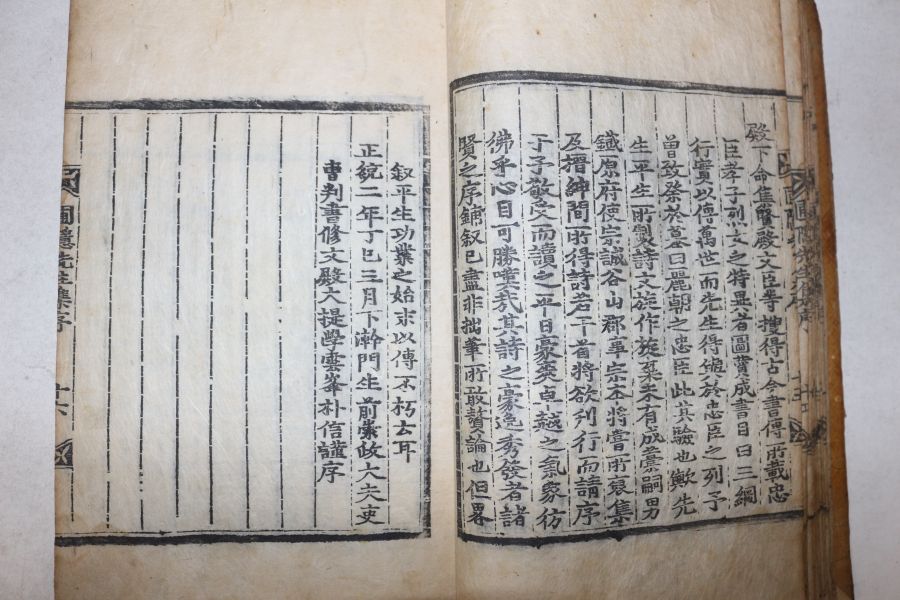 殿下命集賢殿文臣等搜得古今書傳所載忠
臣孝子烈女之特異者圖賛成書目曰三綱
行實以傳萬世而先生得編於忠臣之列予
曾致祭於墓曰麗朝之忠臣此其驗也歟先
生平生所製詩文旋作旋弃未有成藁嗣男
鐵原府使宗誠谷山郡事宗本將嘗所裒集
及搢紳間所得詩若干首將欲刊行而請序
于予敬受而讀之平日豪爽卓越之氣象仿
佛乎心目可勝嘆哉其詩之豪逸秀發者諸
賢之序鋪叙已盡非拙筆所敢贅論也但畧
叙平生功業之始末以傳不朽云耳
正統二年丁巳三月下澣門生前崇政大夫吏
曹判書修文殿大提學雲峯朴信謹序
圃隱先生集序
十六